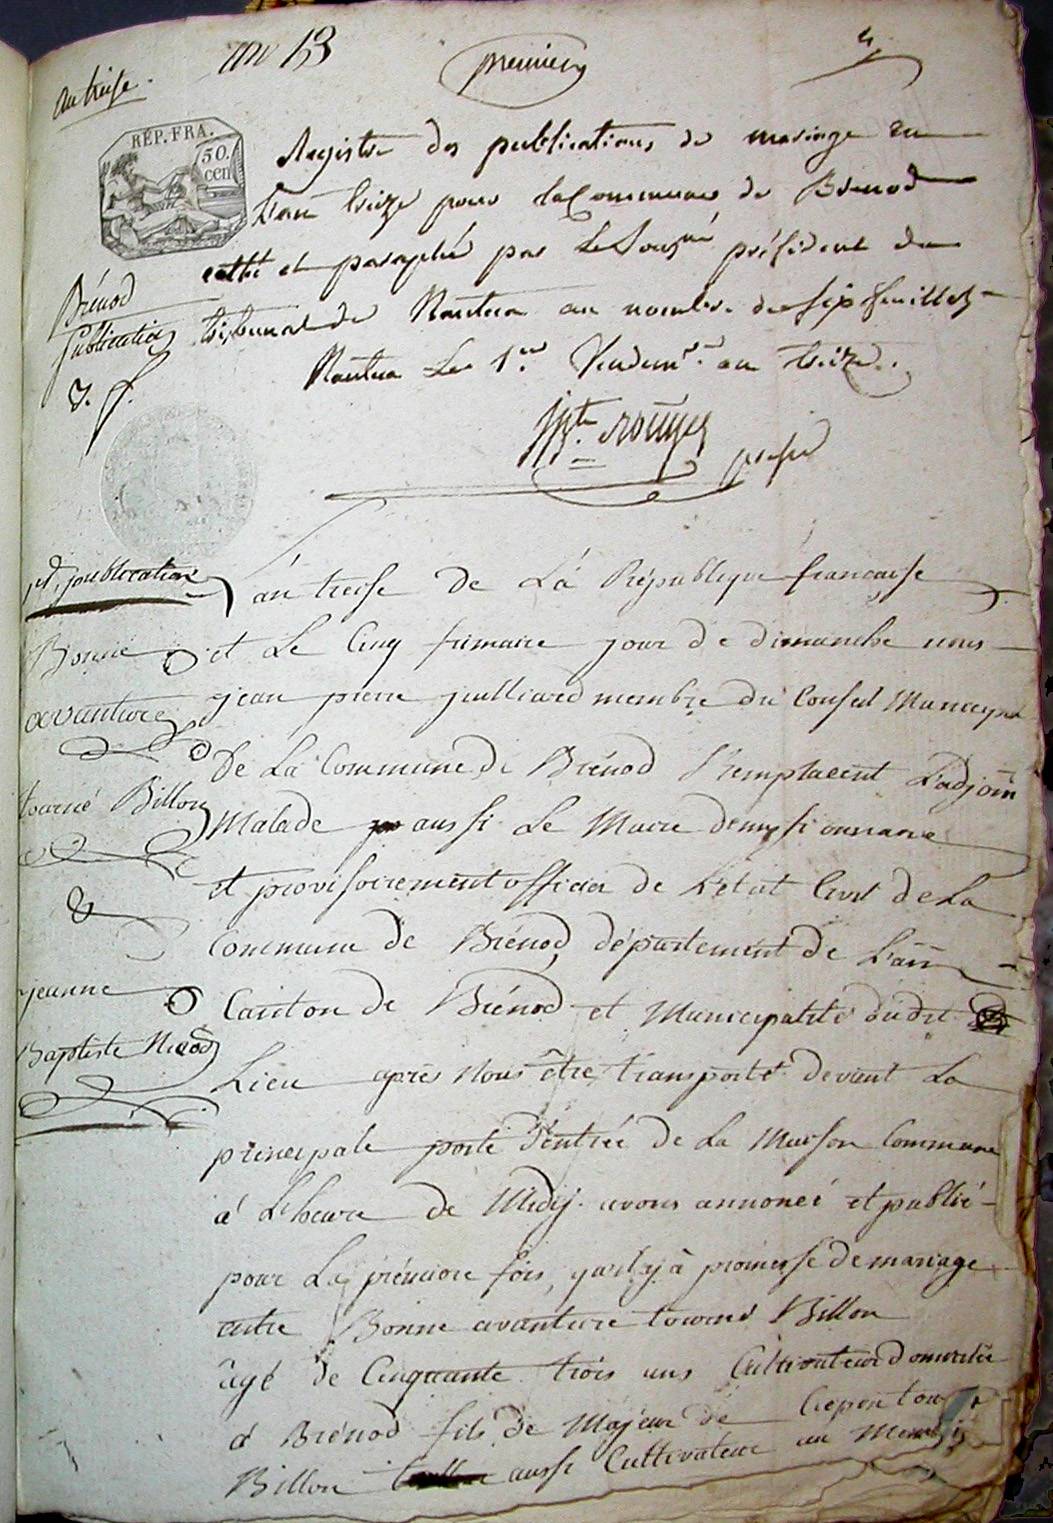 an 13
premier
an treise
RÉP. FRA.
50.
cen
Registre des publications de mariage en
L'an treize pour la Commune de Brenod
cotté et paraphé par Le Sousné président du
tribunal de Nantua au nombre de six feuillets
Nantua Le 1er Vendemre an treize.
Brénod
publication
rouyer
1re publication
án treise de Lá République francaise
et Le Cinq frimaire jour de dimanche nous
jean pierre juilliard membre du Conseil Municipal
De La Commune De Brénod Remplacent L'adjoin
Malade aussi Le Maire demissionnaire
et provisoirement officier de L'état Civil de La
Commune de Brénod département de L'ain
Canton de Brénod et Municipalité dudit
Lieu aprés Nous être transporté devant La
principale porte d'entrée de La Maison Commune
á L'heure de Midy avons annoncé et publié
pour La prémiere fois, qu'il y à promesse de mariage
entre Bonne avanture tourné Billon
âgé de Cinquante trois ans Cultivateur Domicilié
á Brénod fils de Majeur de
Billon aussi Cultivateur au
Bonne
avanture
tourné Billon
&
jeanne
Baptiste